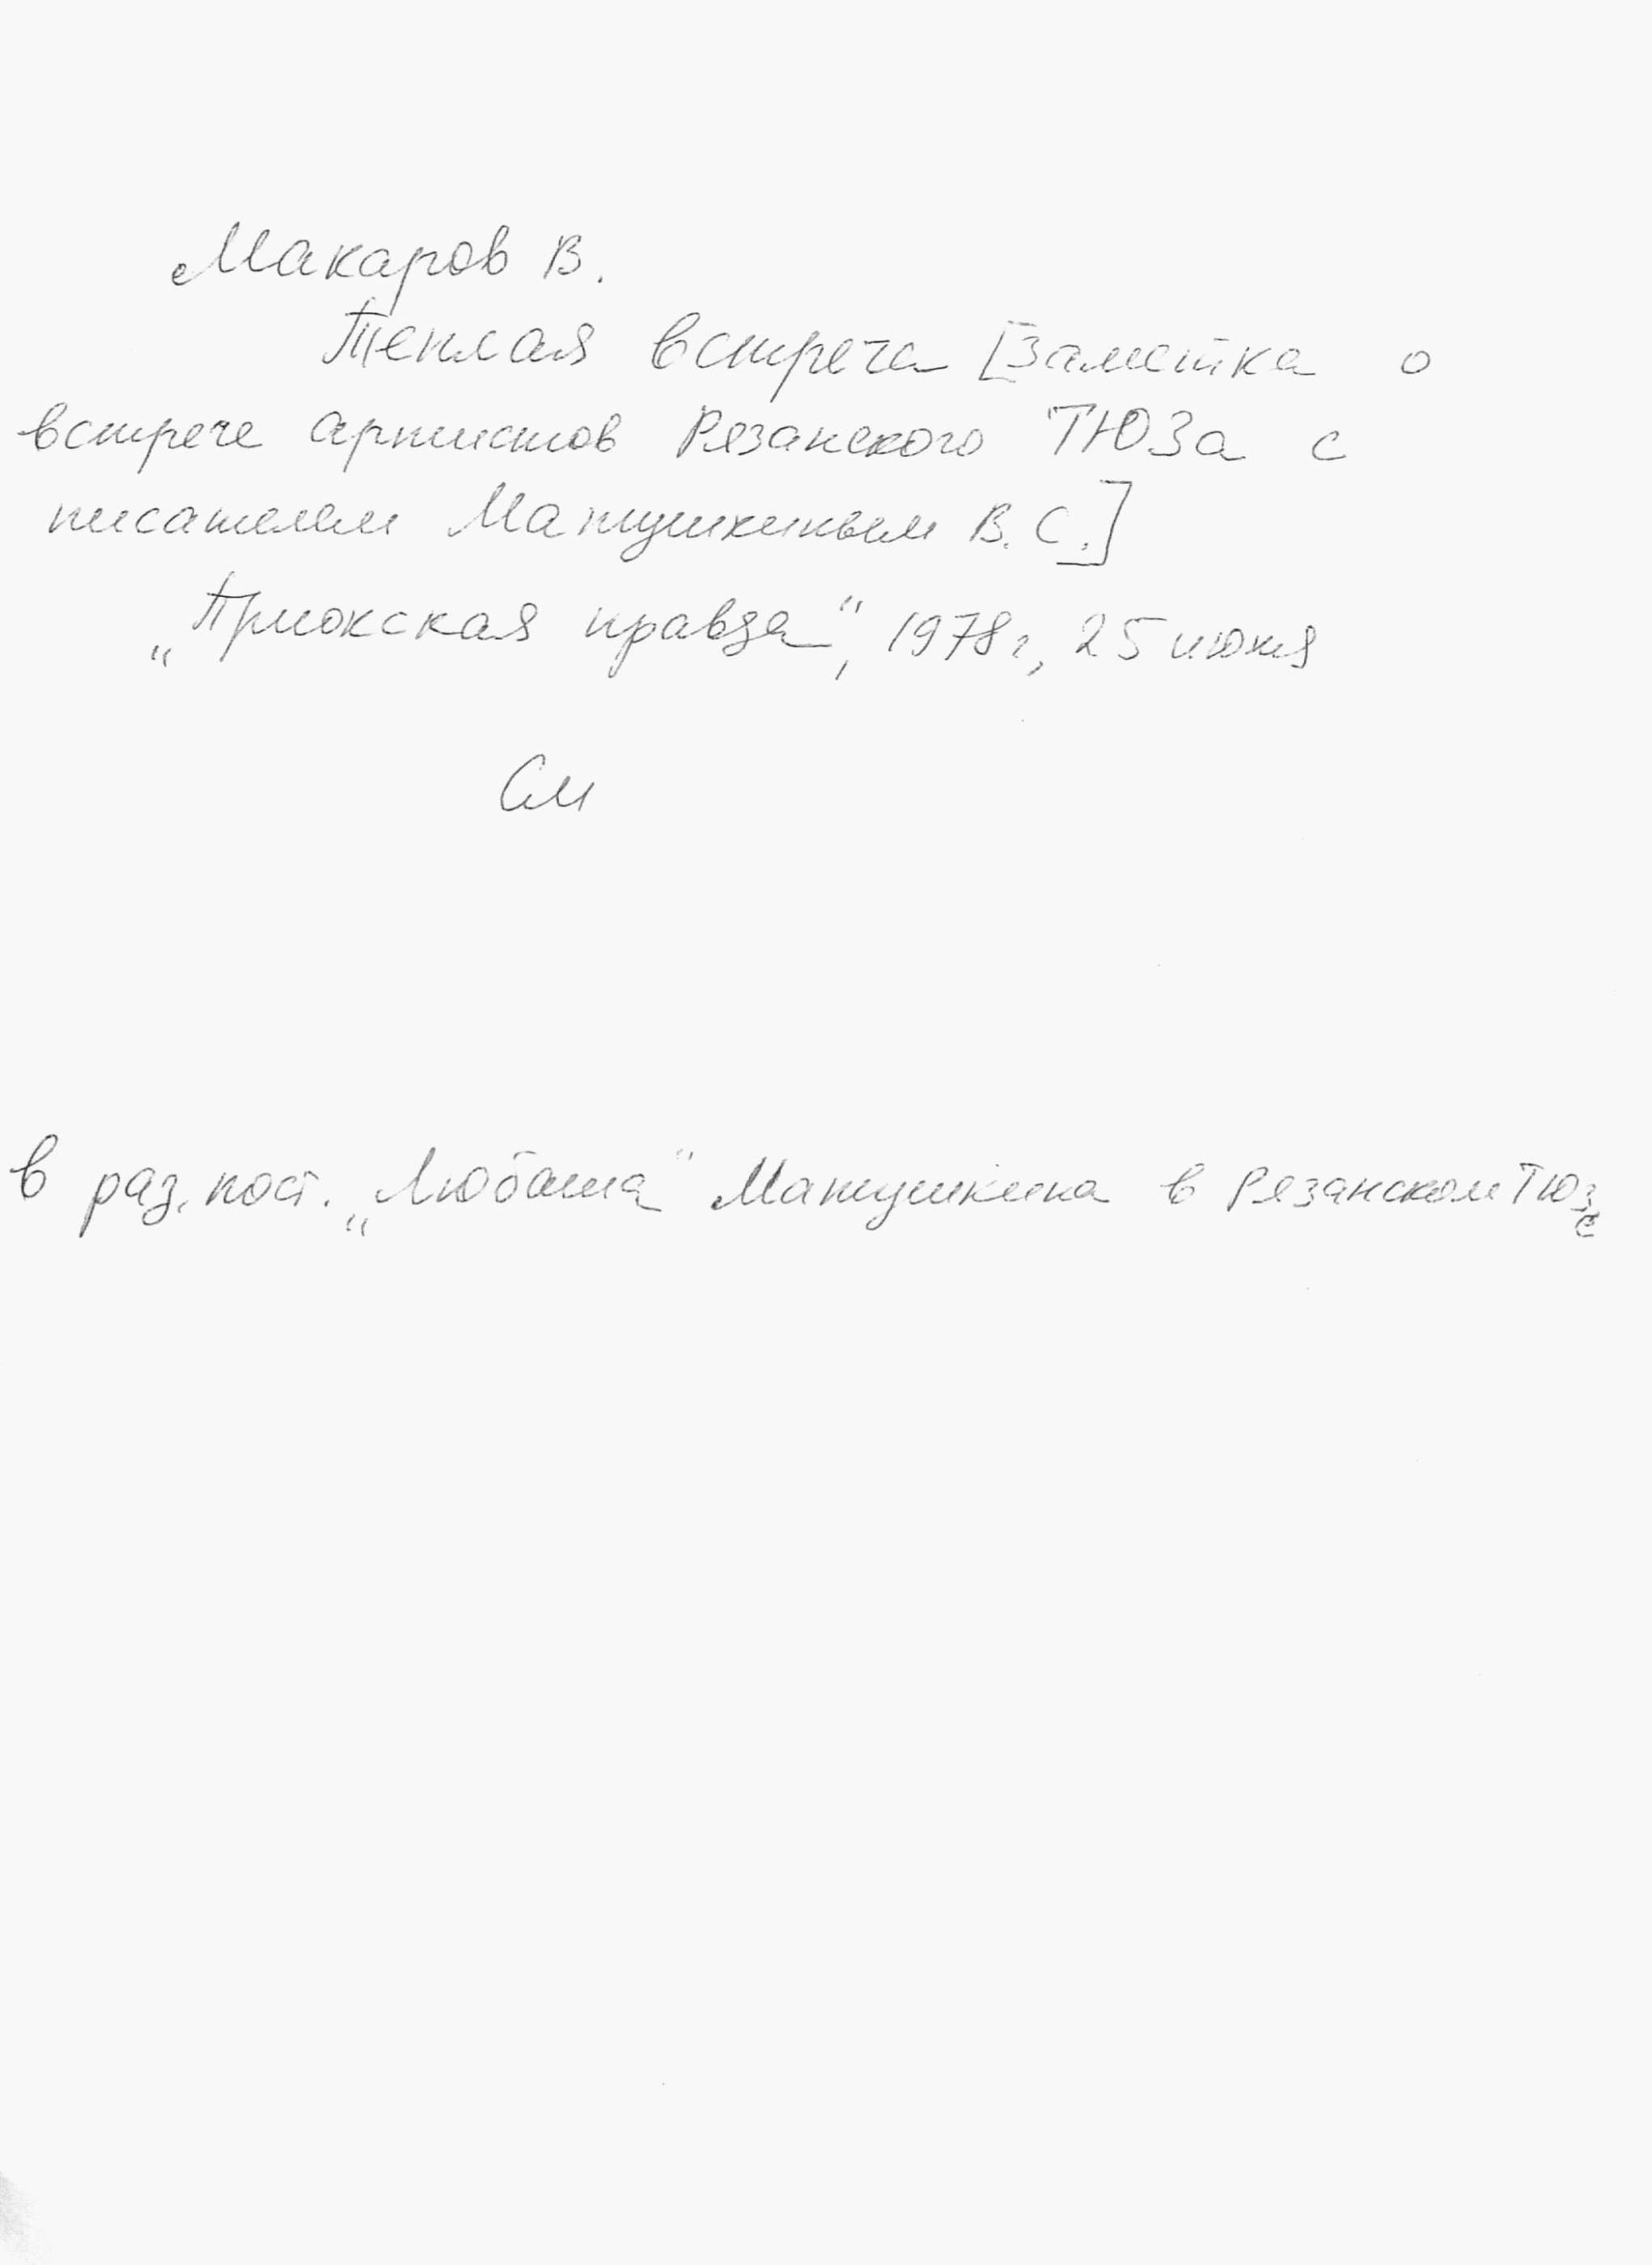 Макаров В.
Теплая встреча [Заметка о
встрече артистов Рязанского ТЮЗа с
писателем Матушкиным В.С.]
„Приокская правда“, 1978г, 25 июня
См
в раз. пост. „Любаша“ Матушкина в Рязанском ТЮЗе